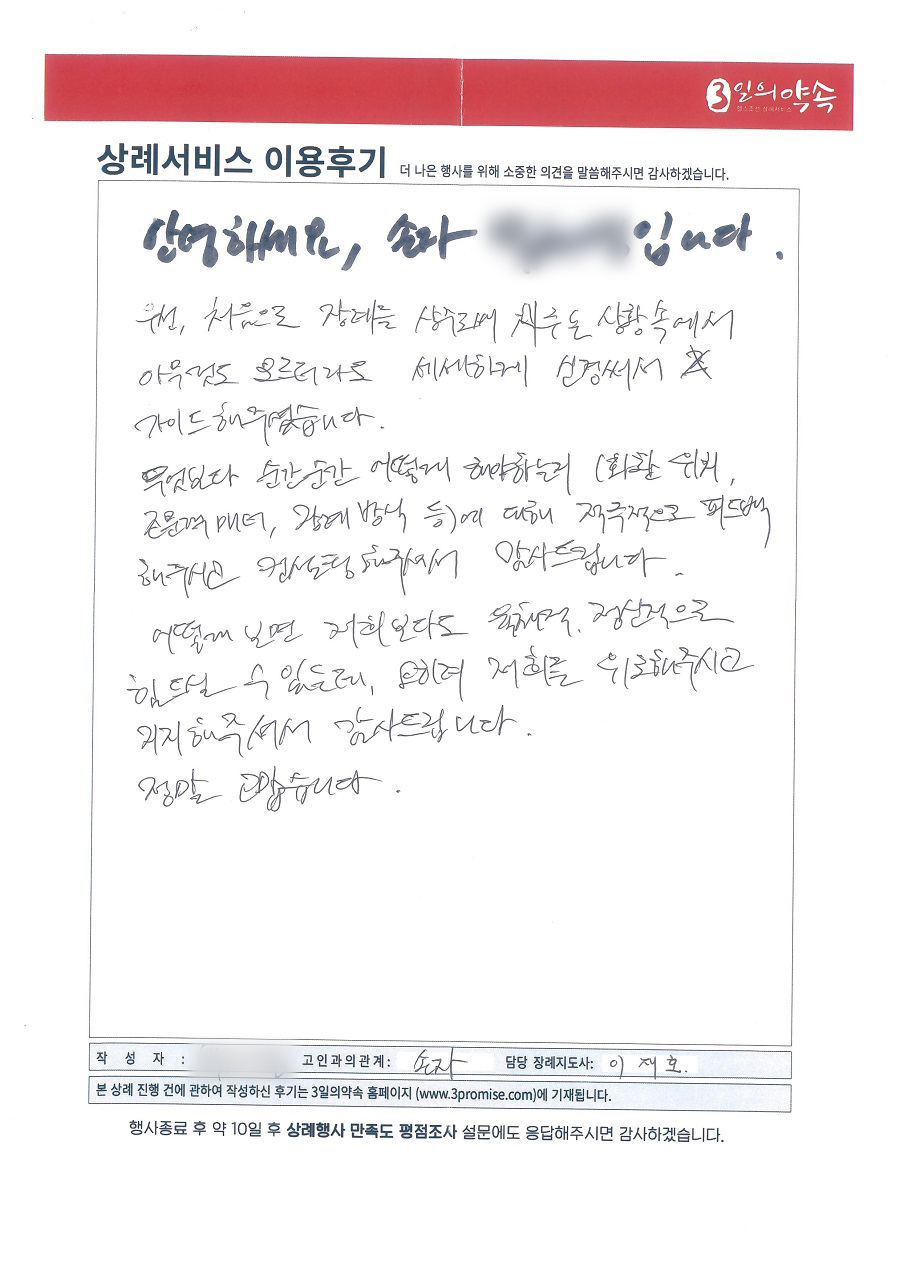 3일의약속
상례서비스 이용후기 더 나은 행사를 위해 소중한 의견을 말씀해주시면 감사하겠습니다.
안녕하세요, 손자 입니다.
우선, 처음으로 장례를 상주로써 치루는 상황속에서
아무것도 모르더라도 세세하게 신경써서
가이드해주셨습니다.
무엇보다 순간순간 어떻게 해야하는지 (화환 위치,
조문객 매너, 장례 방식 등)에 대해 적극적으로 피드백
해주시고 컨설팅해주셔서 감사드립니다.
어떻게 보면 저희보다도 육체적, 정신적으로
힘드실 수 있는데, 오히려 저희를 위로해주시고
지지해주셔서 감사드립니다.
정말 고맙습니다.
작 성 자 : 고인과의관계: 손자 담당 장례지도사: 이재호
본 상례 진행 건에 관하여 작성하신 후기는 3일의약속 홈페이지 (www.3promise.com)에 기재됩니다.
행사종료 후 약 10일 후 상례행사 만족도 평점조사 설문에도 응답해주시면 감사하겠습니다.